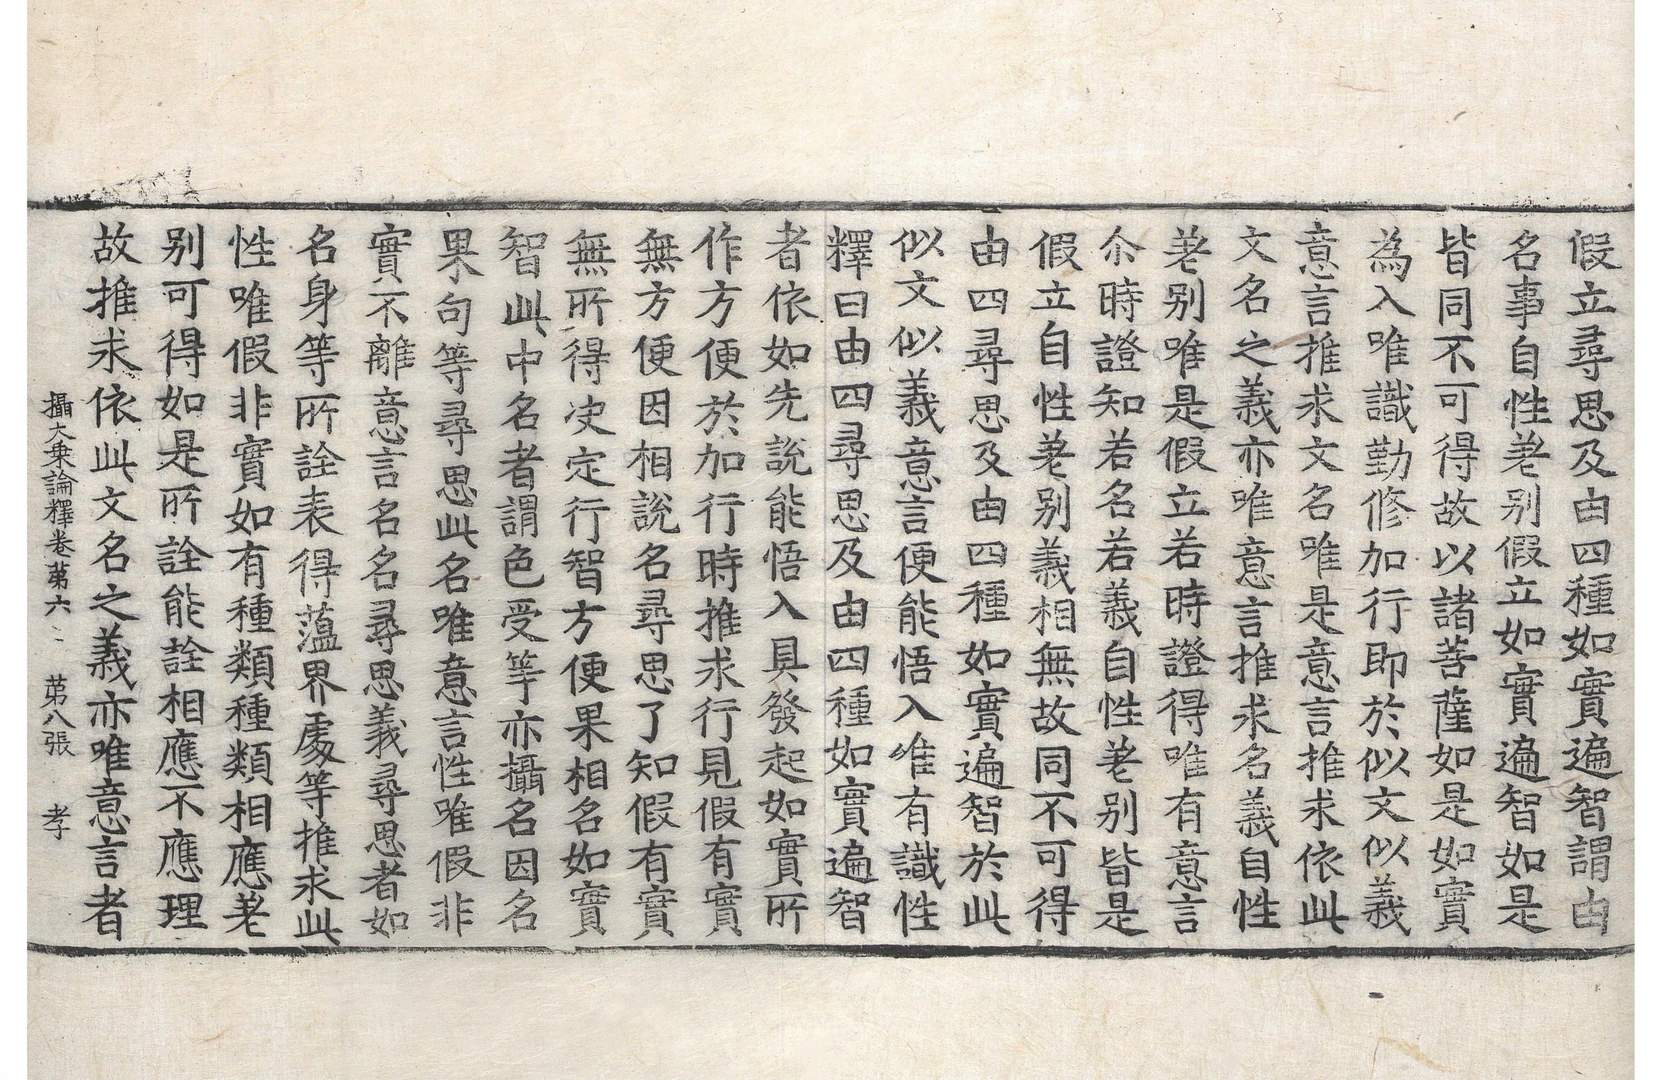 假立尋思及由四種如實遍智謂由
名事自性差别假立如實遍智如是
皆同不可得故以諸菩薩如是如實
為入唯識勤修加行即於似文似義
意言推求文名唯是意言推求依此
文名之義亦唯意言推求名義自性
差别唯是假立若時證得唯有意言
尒時證知若名若義自性差别皆是
假立自性差别義相無故同不可得
由四尋思及由四種如實遍智於此
似文似義意言便能悟入唯有識性
釋曰由四尋思及由四種如實遍智
者依如先說能悟入具發起如實所
作方便於加行時推求行見假有實
無方便因相說名尋思了知假有實
無所得决定行智方便果相名如實
智此中名者謂色受等亦攝名因名
果句等尋思此名唯意言性唯假非
實不離意言名名尋思義尋思者如
名身等所詮表得藴界處等推求此
性唯假非實如有種類種類相應差
别可得如是所詮能詮相應不應理
故推求依此文名之義亦唯意言者
攝大乗論釋卷苐六 苐八張 孝